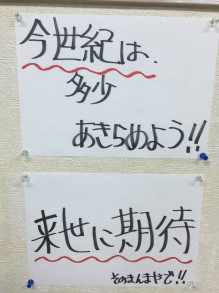 今世紀は、
多少
あきらめよう!!
来世に期待
そのまんまやで!!